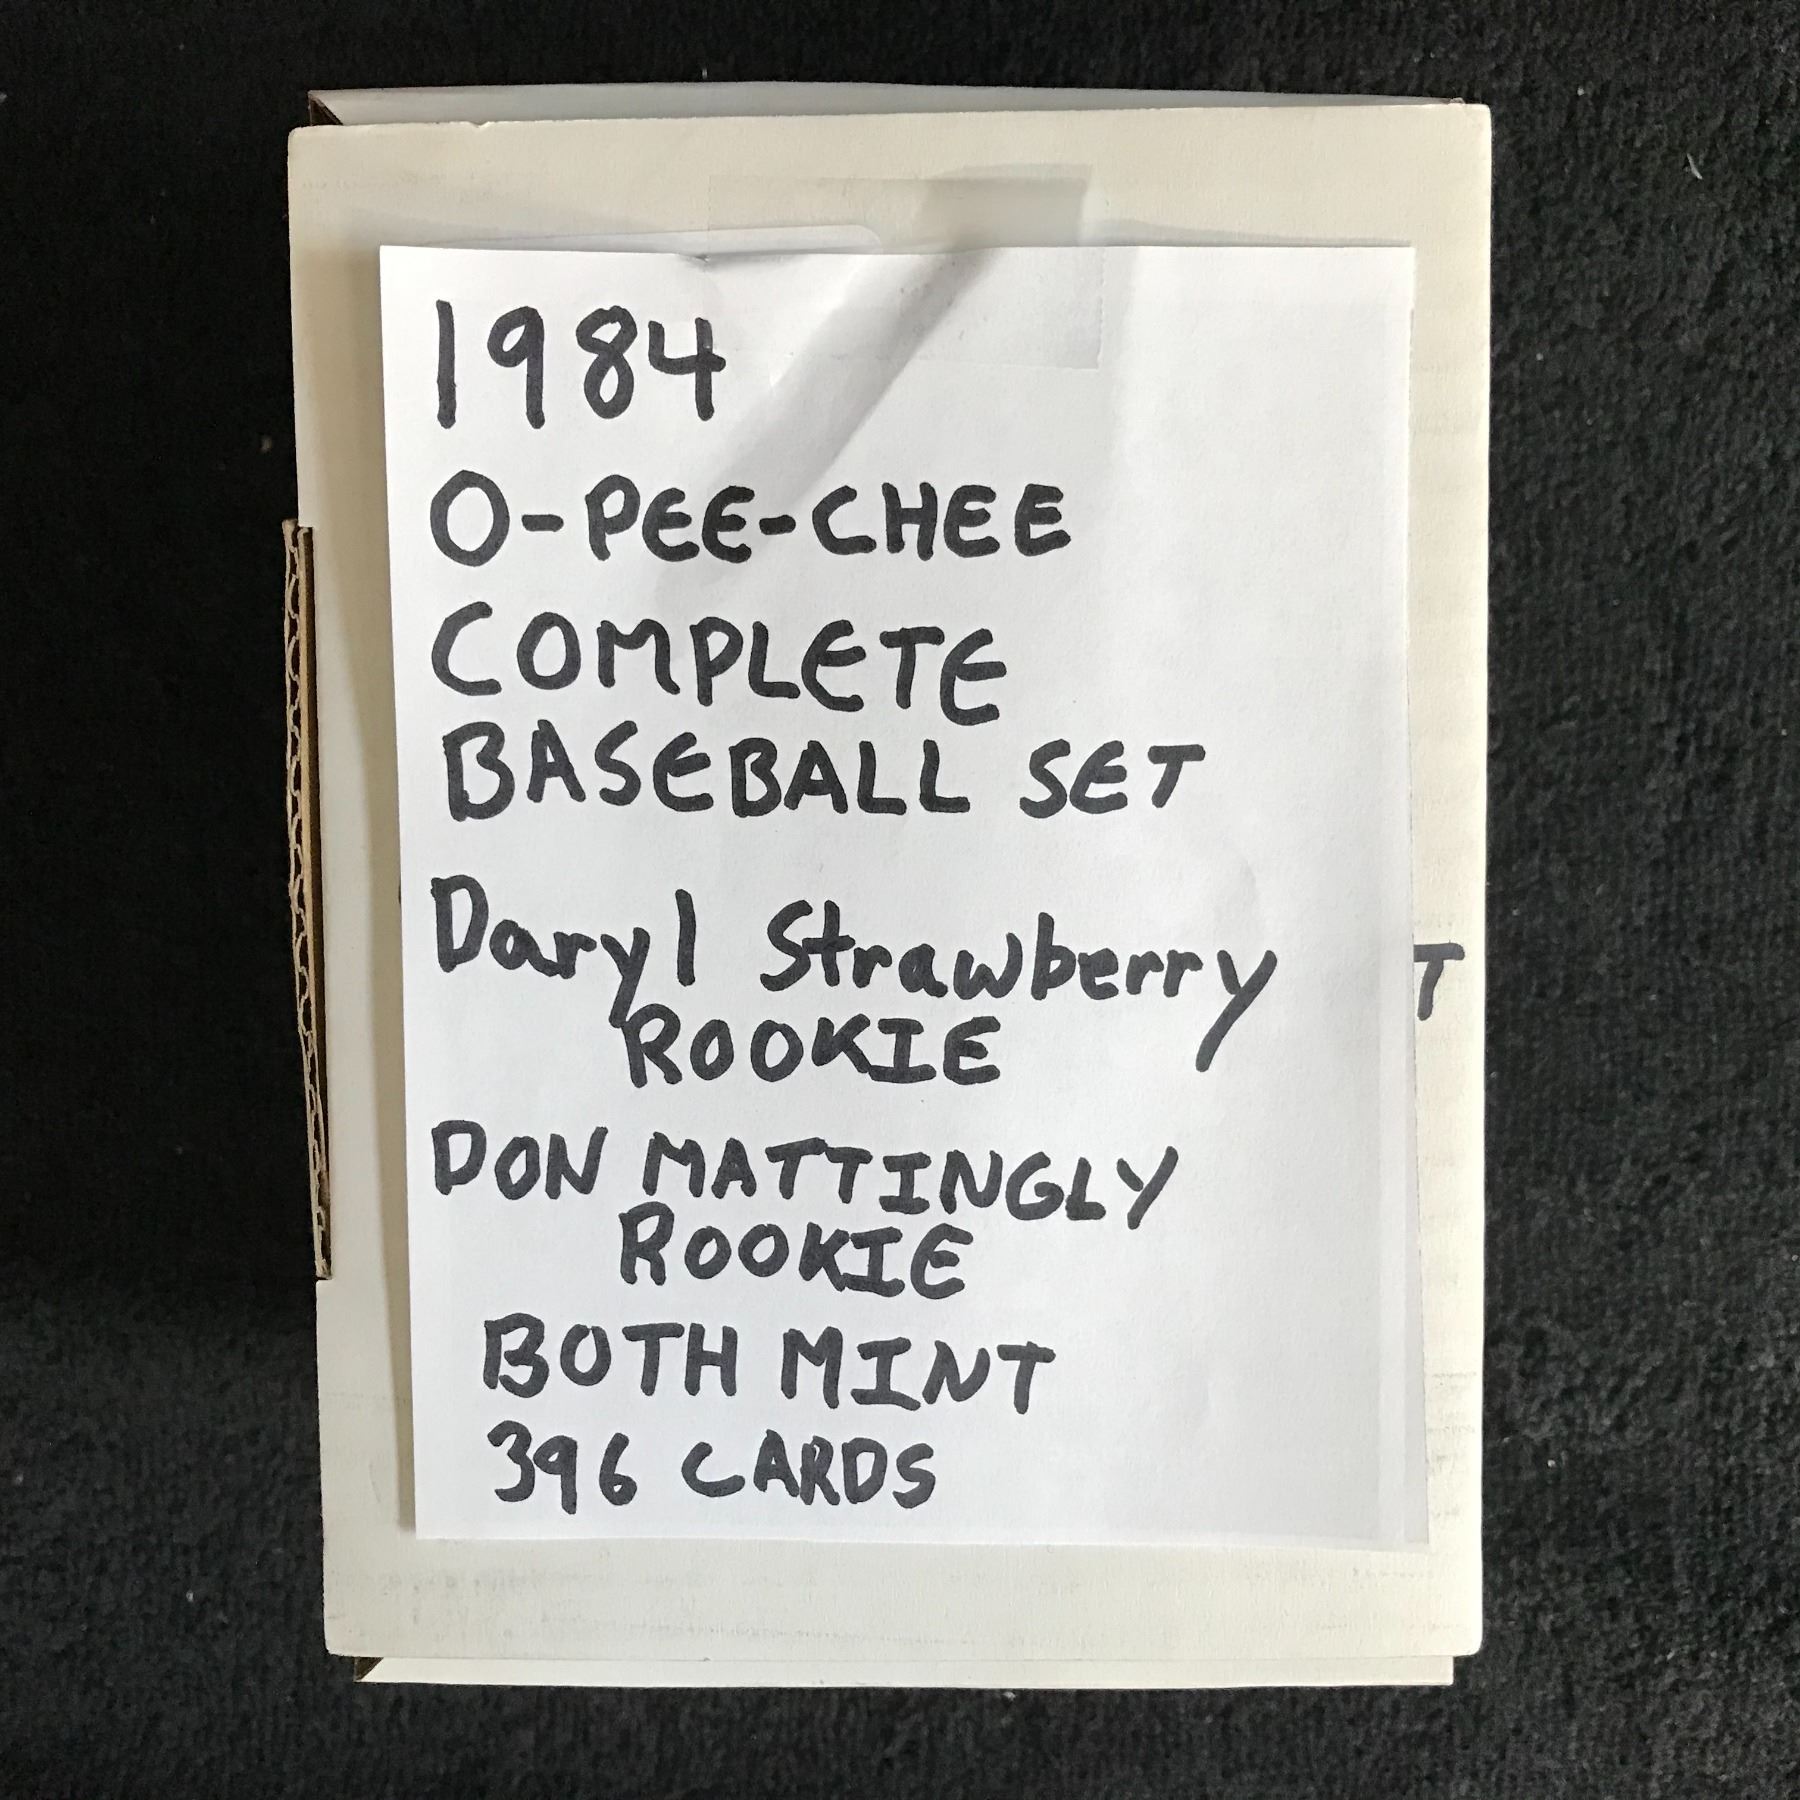 1984
O-PEE-CHEE
COMPLETE
BASEBALL SET
Daryl Strawberry
ROOKIE
T
DON MATTINGLY
ROOKIE
BOTH MINT
396 CARDS